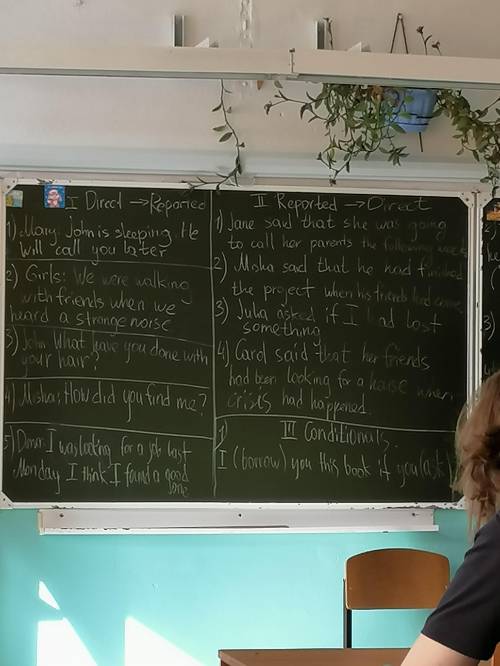 I Direct → Reported
1) Mary: John is sleeping. He
will call you later
2) Girls: We were walking
with friends when we
heard a strange noise
3) John: What have you done with
your hair?
4) Misha: How did you find me?
5) I was looking for a job last
Monday. I think I found a good
one
II Reported → Direct
1) Jane said that she was going
to call her parents the following week
2) Misha said that he had finished
the project when his friends had
3) Julia asked if I had lost
something
4) Carol said that her friends
had been looking for a house when
crisis had happened.
III Conditionals.
1)
I (borrow) you this book if you (ask)
3)